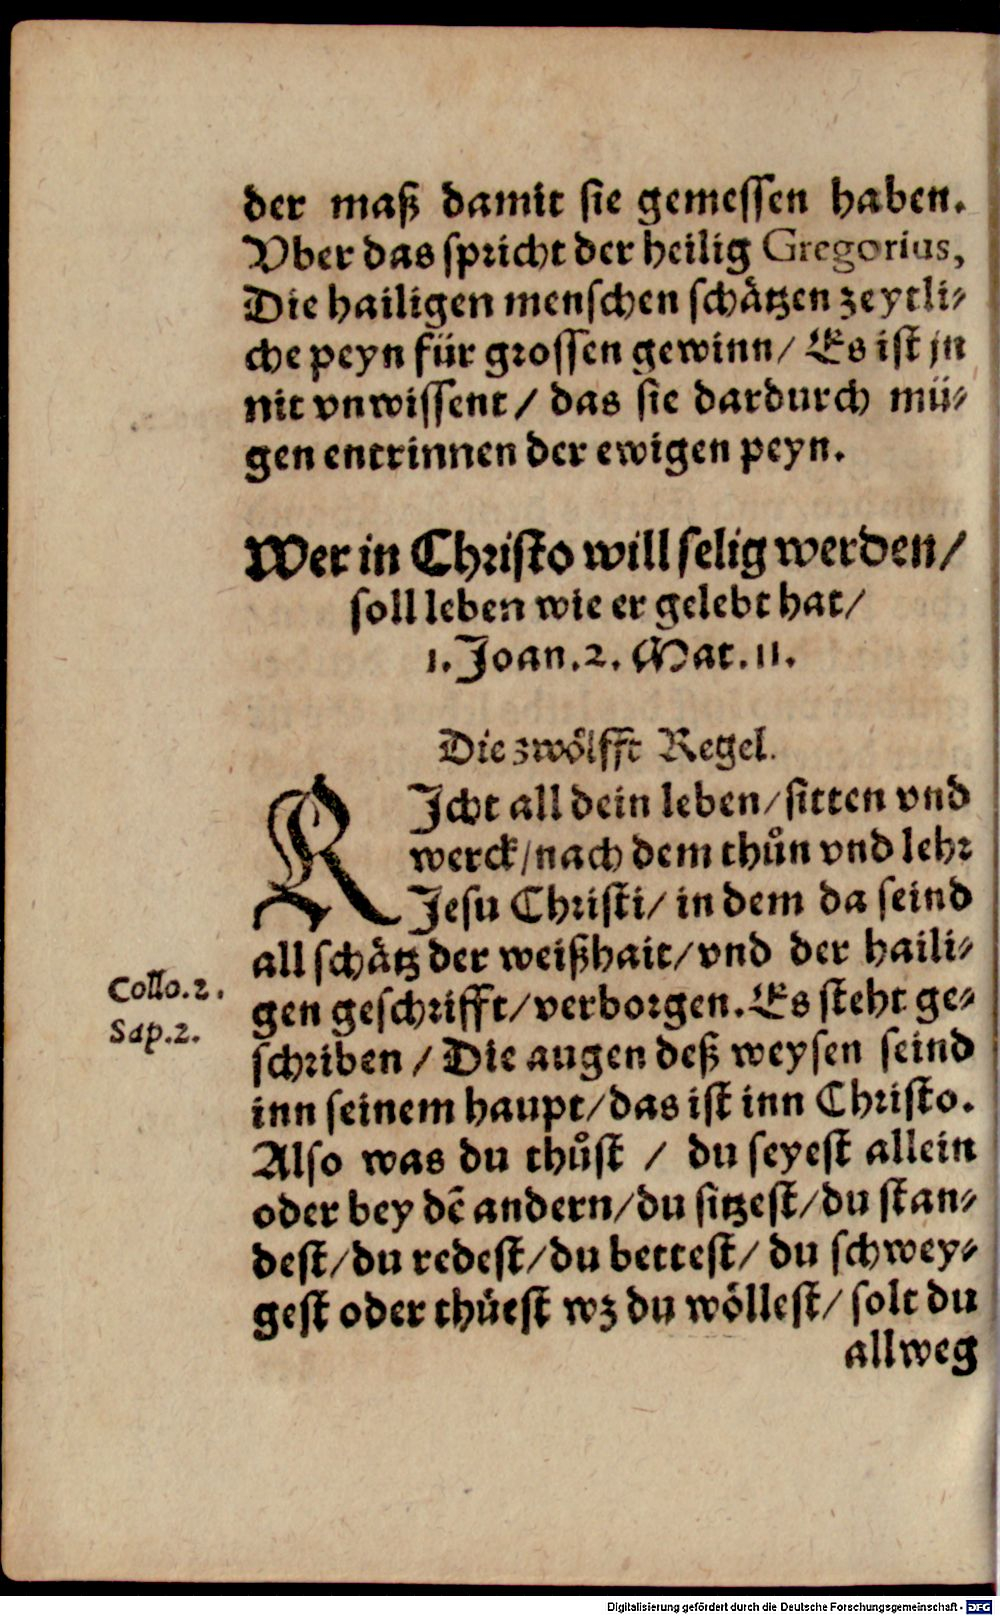 der maß damit sie gemessen haben.
Vber das spricht der heilig Gregorius,
Die hailigen menschen schätzen zeytli-
che peyn für grossen gewinn/ Es ist jn
nit vnwissent / das sie dardurch mü-
gen entrinnen der ewigen peyn.
Wer in Christo will selig werden/
soll leben wie er gelebt hat/
1. Joan. 2. Mat. 11.
Die zwölfft Regel.
RJcht all dein leben/ sitten vnd
werck/ nach dem thůn vnd lehr
Jesu Christi/ in dem da seind
all schätz der weißhait/ vnd der haili-
Collo. 2. gen geschrifft/ verborgen. Es steht ge-
Sap. 2. schriben / Die augen deß weysen seind
inn seinem haupt/ das ist inn Christo.
Also was du thůst / du seyest allein
oder bey dē andern/ du sitzest/ du stan-
dest/ du redest/ du bettest/ du schwey-
gest oder thüest wz du wöllest/ solt du
allweg
Digitalisierung gefördert durch die Deutsche Forschungsgemeinschaft - DFG